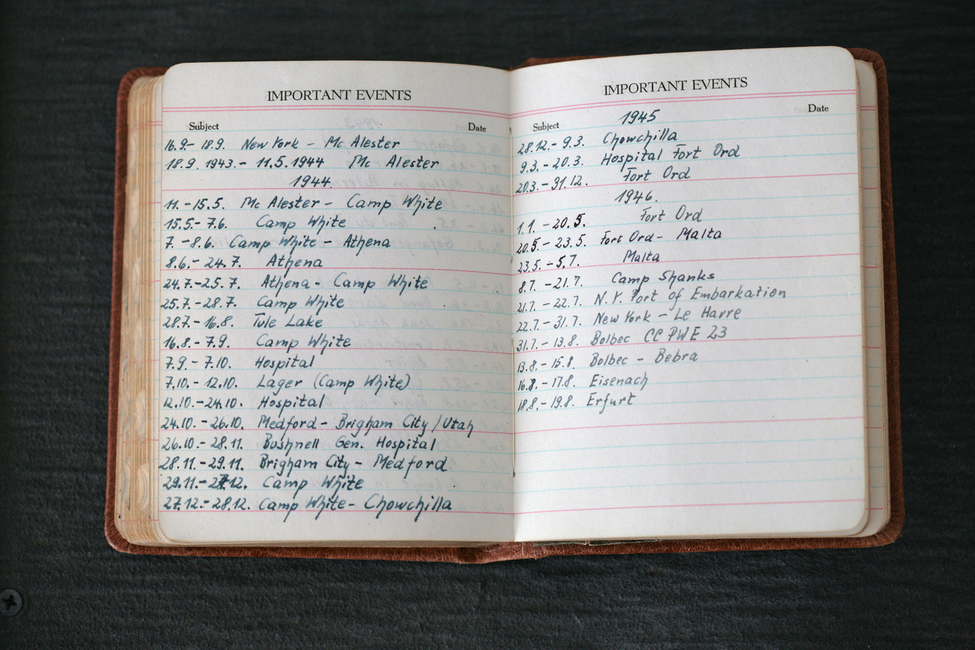 IMPORTANT EVENTS
Subject Date
16.9.- 18.9. New York - Mc Alester
18.9. 1943.- 11.5.1944 Mc Alester
1944.
11.-15.5. Mc Alester - Camp White
15.5.- 7.6. Camp White
7.-8.6. Camp White - Athena
8.6.- 24.7. Athena
24.7.-25.7. Athena - Camp White
25.7.-28.7. Camp White
28.7.- 16.8. Tule Lake
16.8.- 7.9. Camp White
7.9.- 7.10. Hospital
7.10.- 12.10. Lager (Camp White)
12.10.-24.10. Hospital
24.10.- 26.10. Medford - Brigham City / Utah
26.10.- 28.11. Bushnell Gen. Hospital
28.11.-29.11. Brigham City - Medford
29.11.-27.12. Camp White
27.12.- 28.12. Camp White - Chowchilla
IMPORTANT EVENTS
Subject Date
1945
28.12.- 9.3. Chowchilla
9.3.- 20.3. Hospital Fort Ord
20.3.- 31.12. Fort Ord
1946.
1.1. - 20.5. Fort Ord
20.5. - 23.5. Fort Ord - Malta
23.5. - 5.7. Malta
8.7. - 21.7. Camp Shanks
21.7. - 22.7. N.Y. Port of Embarkation
22.7. - 31.7. New York - Le Havre
31.7. - 13.8. Bolbec CC PWE 23
13.8. - 15.8. Bolbec - Bebra
16.8. - 17.8. Eisenach
18.8. - 19.8. Erfurt